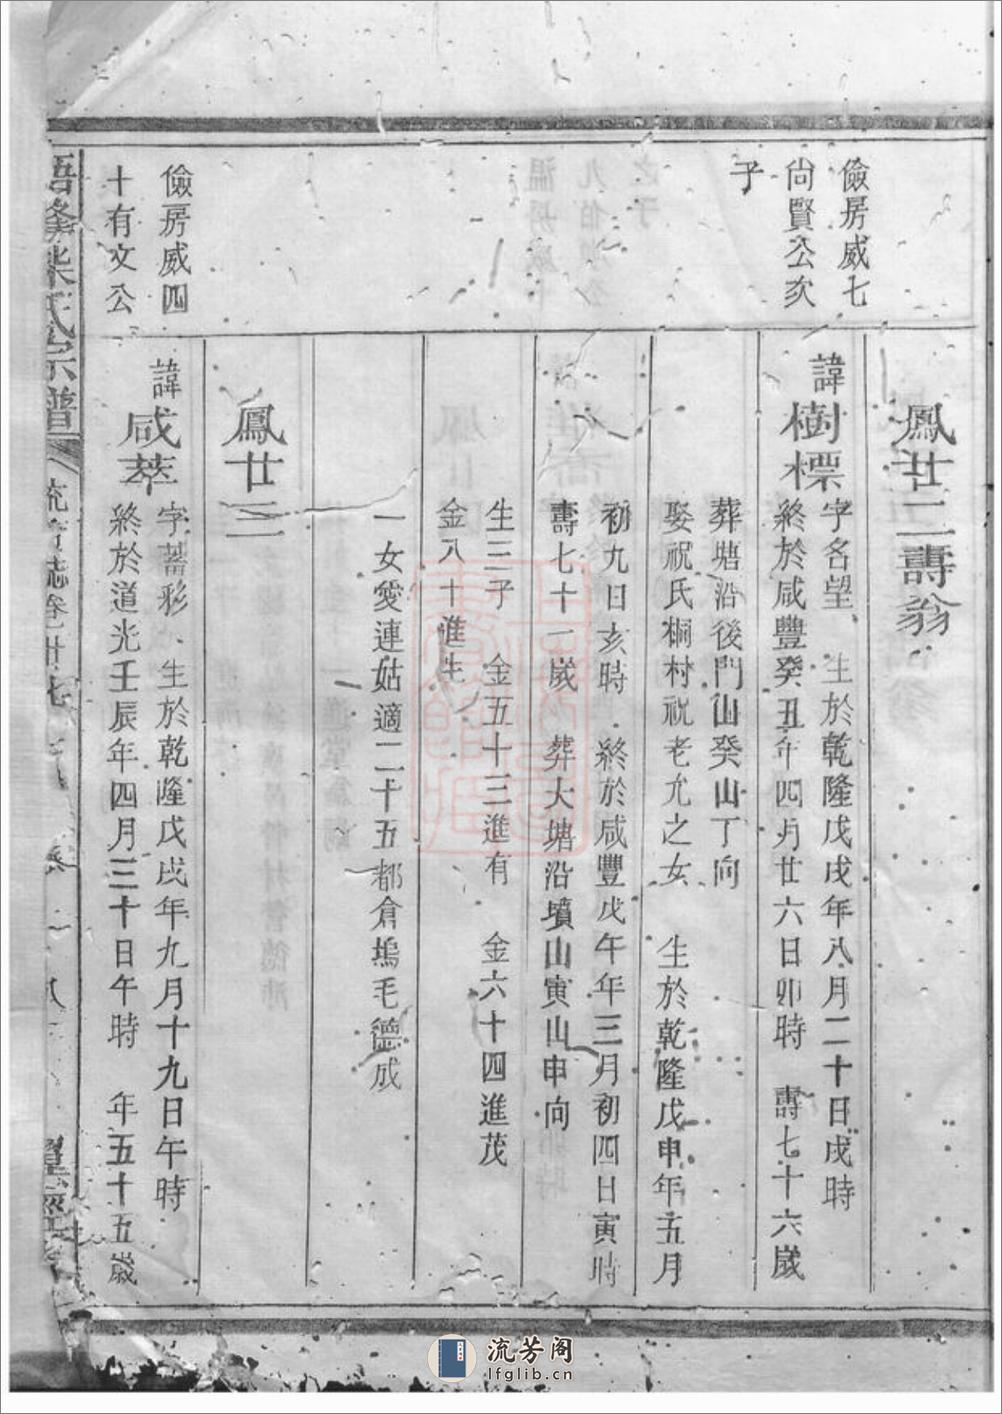 儉房威七
尚賢公次
子
鳳廿二壽翁
諱樹標
字名望、生於乾隆戊戌年八月二十日戌時
終於咸豐癸丑年四月廿六日卯時 壽七十六歲
葬塘沿後門山癸山丁向
娶祝氏桐村祝老允之女 生於乾隆戊申年五月
初九日亥時 終於咸豐戊午年三月初四日寅時
壽七十一歲 葬大塘沿墳山寅山申向
生三子 金五十三進有 金六十四進茂
金八十進生
一女愛連姑適二十五都倉塢毛德成
儉房威四
十有文公
鳳廿三
諱咸萃
字蓄彩、生於乾隆戊戌年九月十九日午時
終於道光壬辰年四月三十日午時 年五十五歲
氏宗譜
流芳阁
lfglib.cn